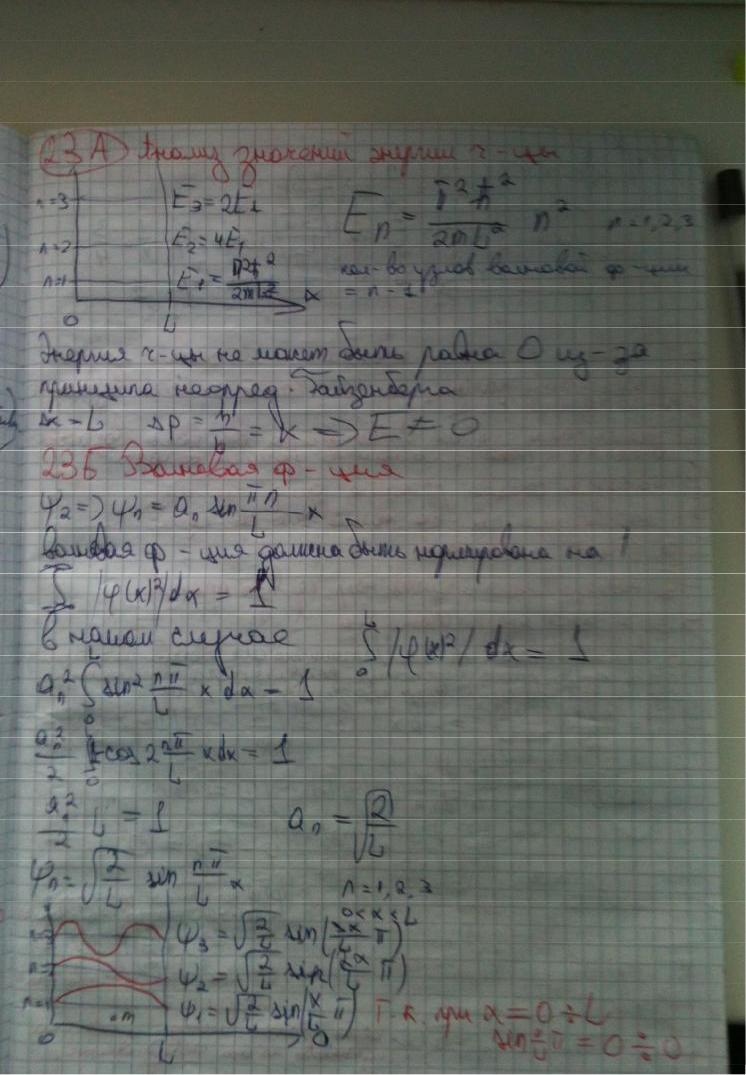 23А Анализ значений энергии ч-цы
n=3 E₃=2E₁
n=2 E₂=4E₁
n=1 E₁= π²ħ²/2mL² x
0 L
Eₙ = π²ħ²/2mL² n² n=1,2,3
кол-во узлов волновой ф-ции
= n-1
Энергия ч-цы не может быть равна 0 из-за
принципа неопред. Гайзенберга
Δx=L Δp = ħ/L = => E≠0
23Б Волновая ф-ция
ψ₂=> ψₙ = aₙ sin πn/L x
Волновая ф-ция должна быть нормирована на 1
∫ |ψ(x)²|dx = 1
в нашем случае ₀∫ᴸ |ψ(x)²| dx = 1
aₙ² ₀∫ᴸ sin² nπ/L x dx = 1
aₙ²/2 ₀∫ 1-cos 2 nπ/L x dx = 1
aₙ²/2 L = 1 aₙ = √2/L
ψₙ = √2/L sin nπ/L x n=1,2,3
0<x<L
n=3 ψ₃ = √2/L sin(3x/L π)
n=2 ψ₂ = √2/L sin(2x/L π)
n=1 ψ₁ = √2/L sin(x/L π)
•m
0 L 0
Т.к. при x=0÷L
sin π = 0÷0